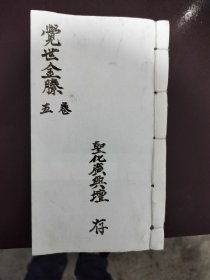 覺世金滕
五卷
聖化廣興壇 存